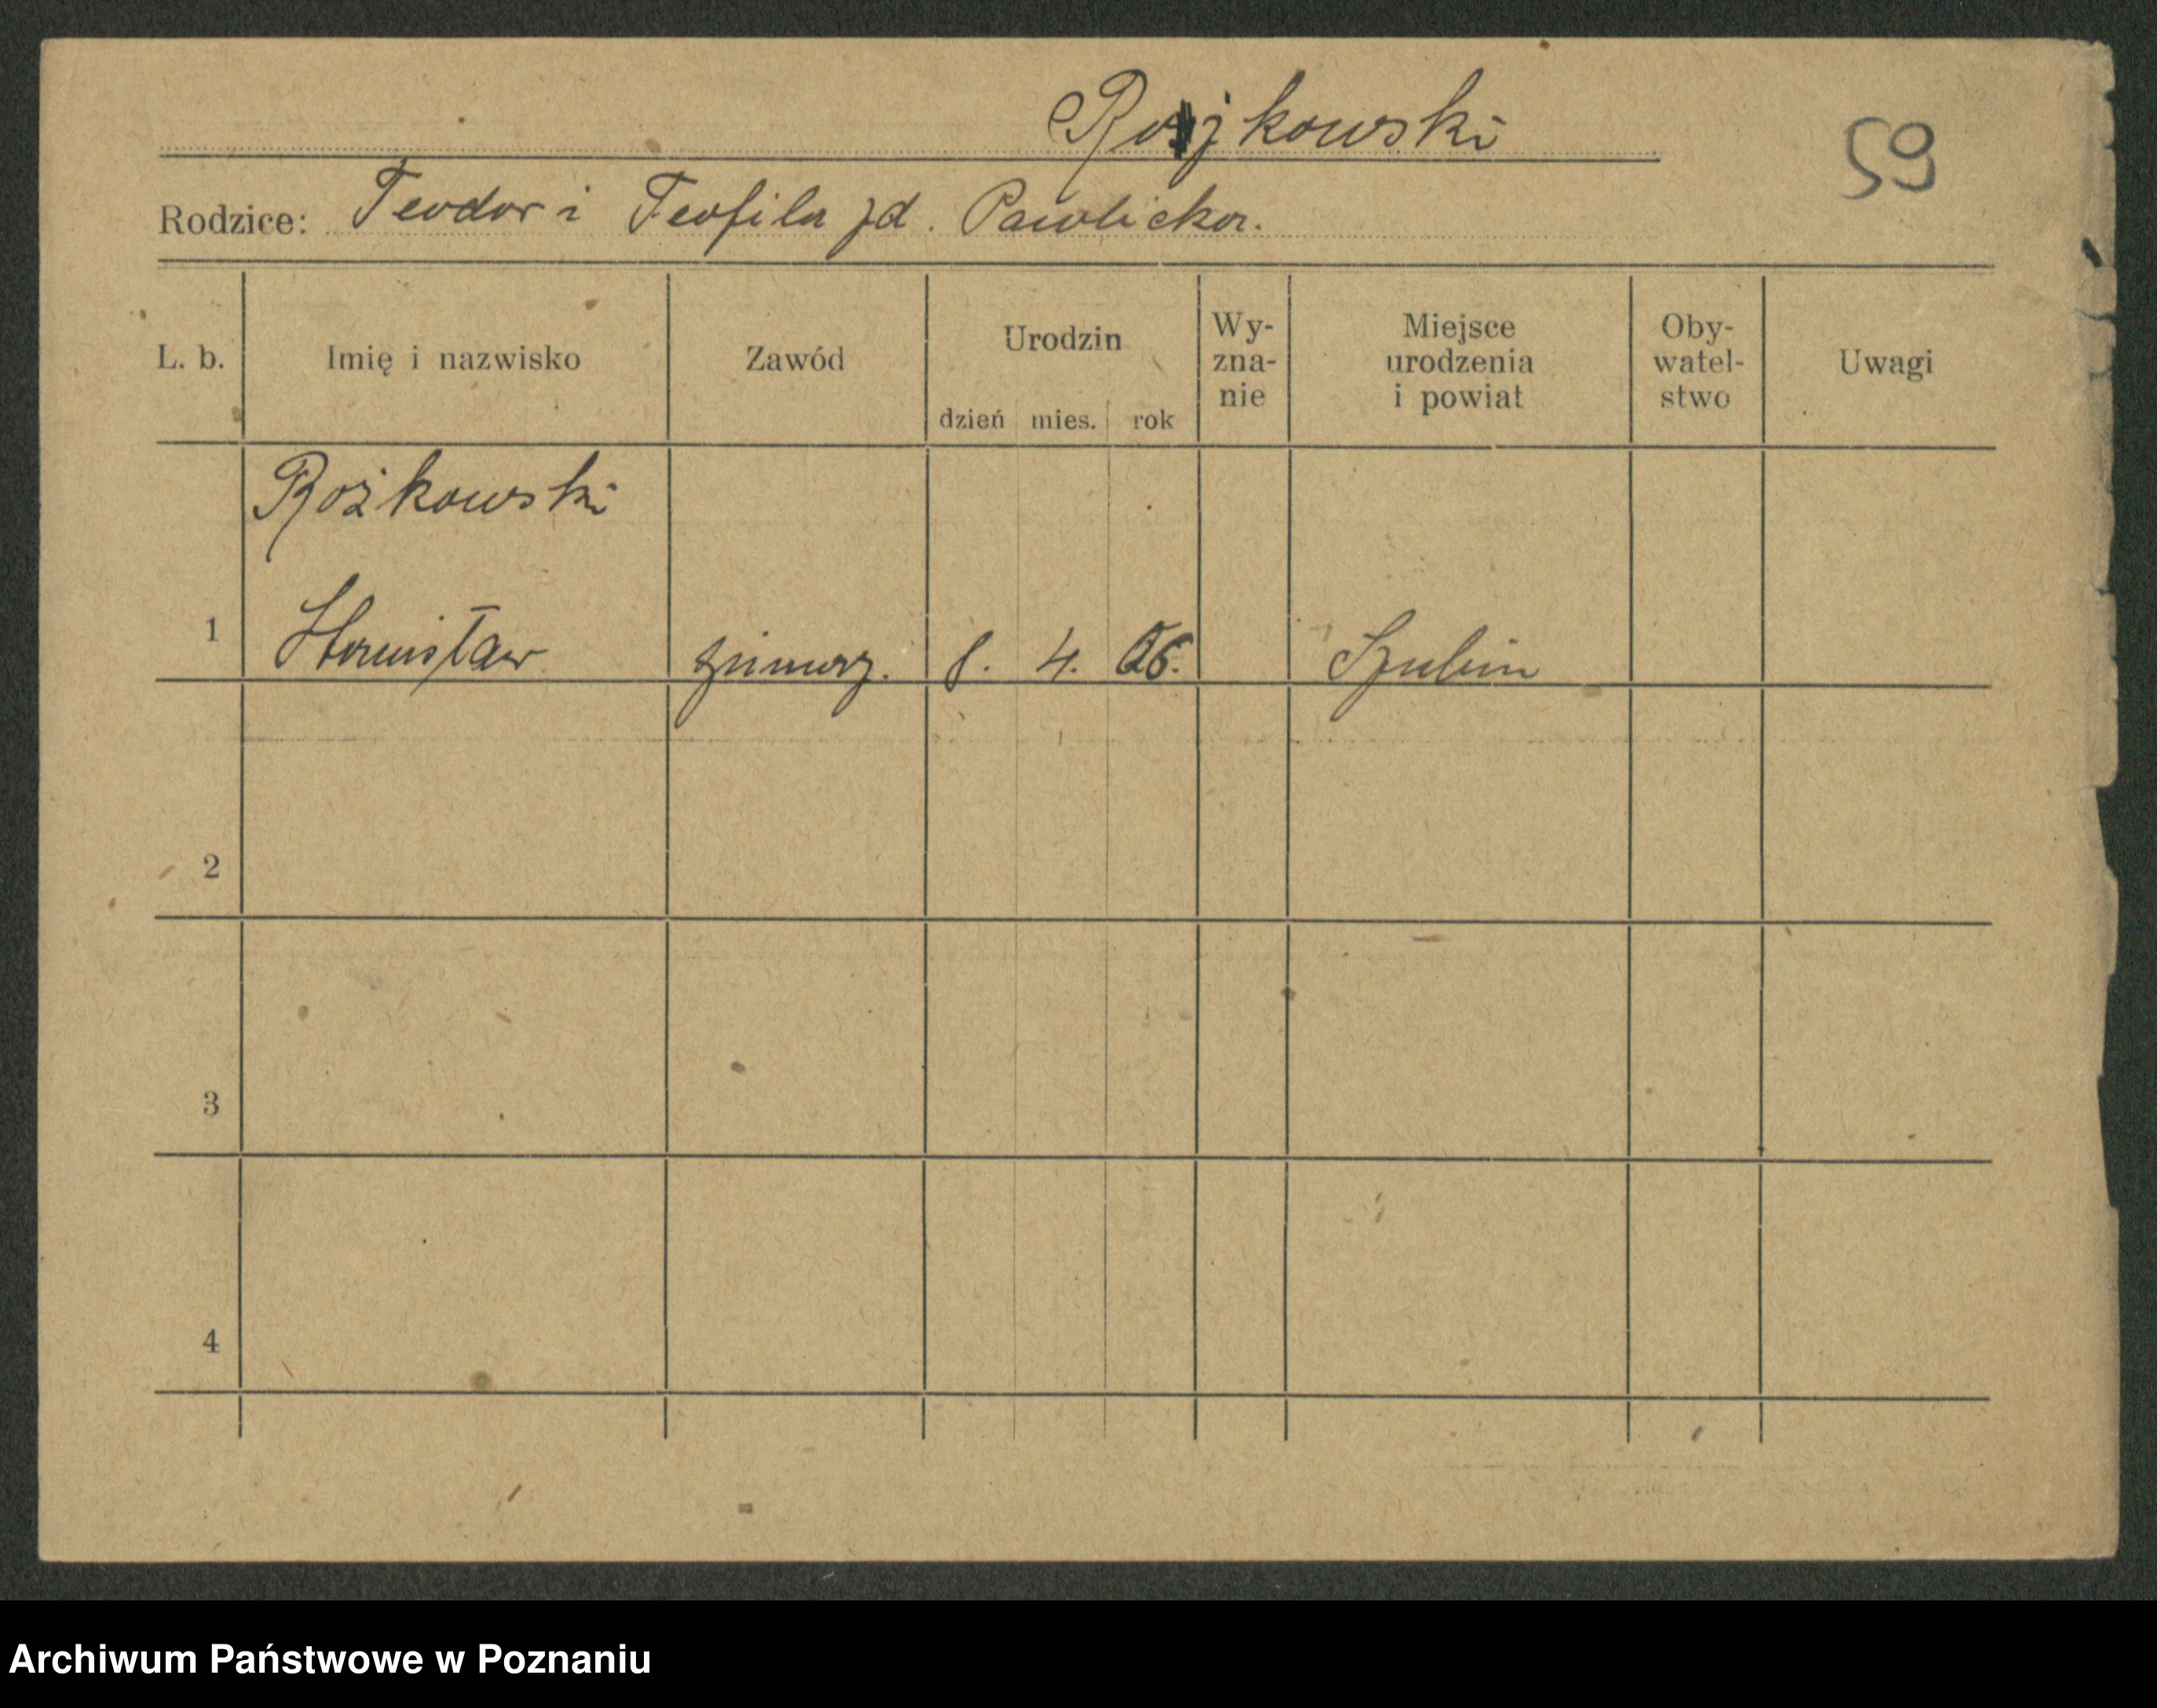 Rożkowski
59
Rodzice: Teodor i Teofila zd. Pawlicka.
L. b. Imię i nazwisko Zawód Urodzin dzień mies. rok Wy-zna-nie Miejsce urodzenia i powiat Oby-watel-stwo Uwagi
Rożkowski
1 Stanisław 8. 4. 06. Szubin
2
3
4
Archiwum Państwowe w Poznaniu